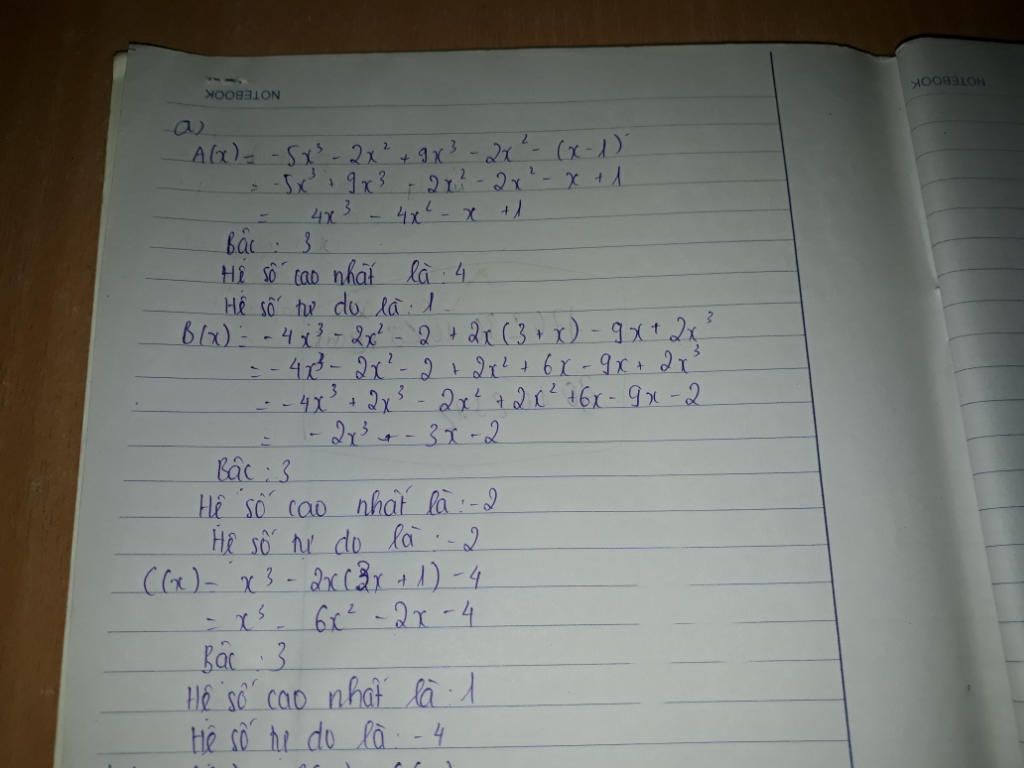 NOTEBOOK
NOTEBOOK
a)
A(x) = -5x³ - 2x² + 9x³ - 2x² - (x-1)
= -5x³ + 9x³ - 2x² - 2x² - x + 1
= 4x³ - 4x² - x + 1
Bậc : 3
Hệ số cao nhất là : 4
Hệ số tự do là : 1
B(x) = -4x³ - 2x² - 2 + 2x(3+x) - 9x + 2x³
= -4x³ - 2x² - 2 + 2x² + 6x - 9x + 2x³
= -4x³ + 2x³ - 2x² + 2x² + 6x - 9x - 2
= -2x³ + -3x - 2
Bậc : 3
Hệ số cao nhất là : -2
Hệ số tự do là : -2
C(x) = x³ - 2x(3x+1) - 4
= x³ - 6x² - 2x - 4
Bậc : 3
Hệ số cao nhất là : 1
Hệ số tự do là : -4